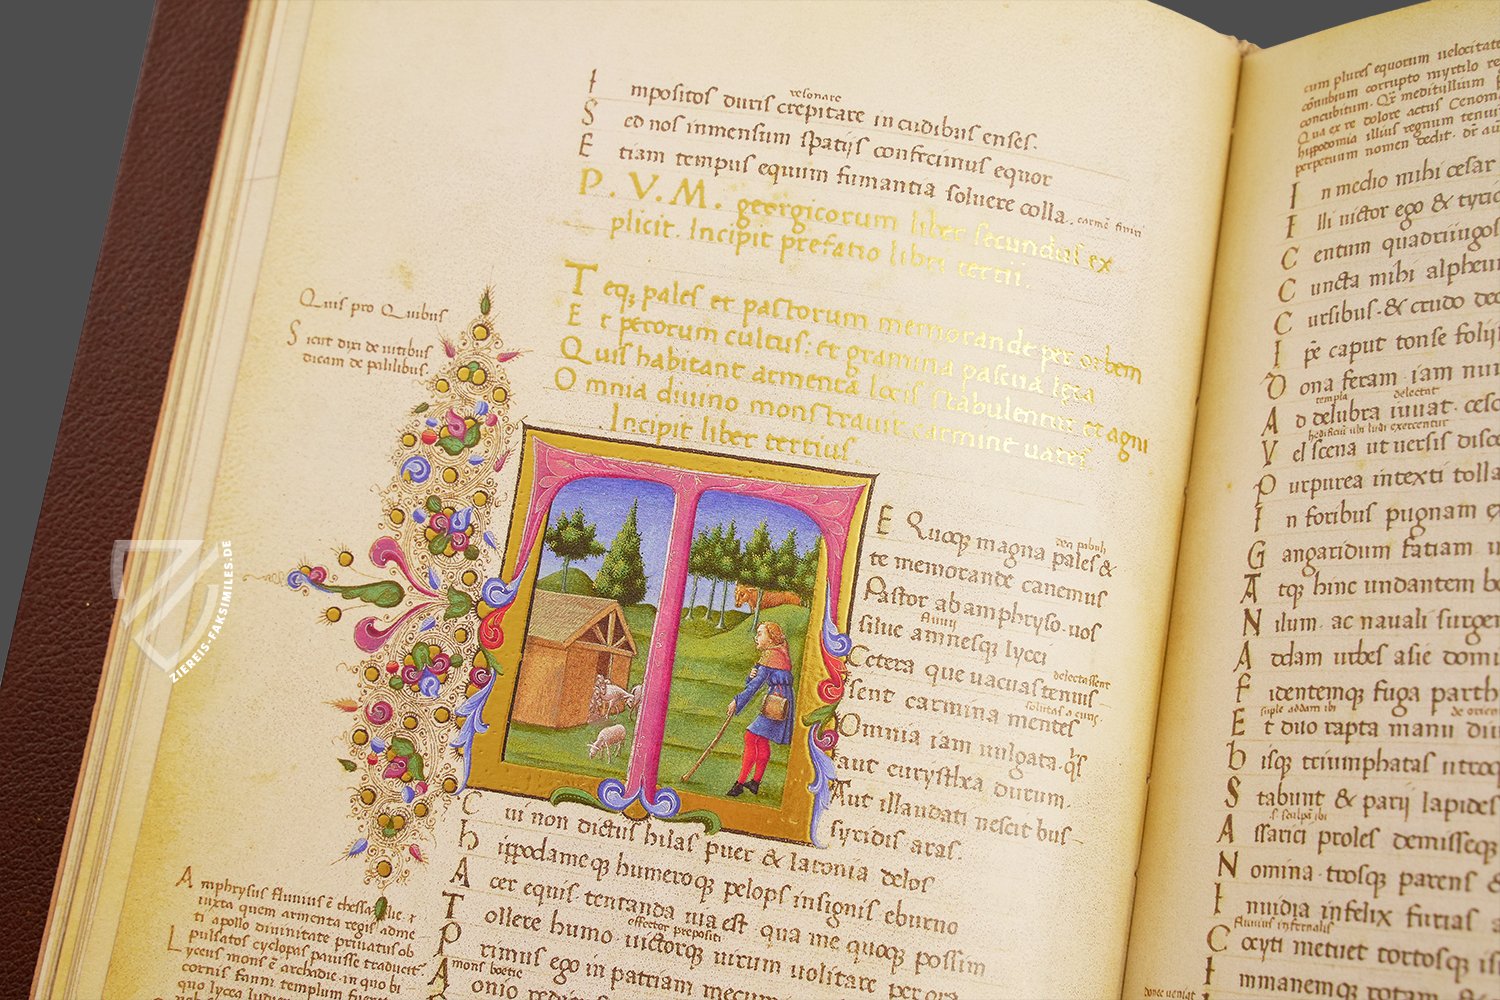 resonare
I mpositos duris crepitare in cudibus enses.
S ed nos inmensum spatijs confecimus equor
E t iam tempus equum fumantia soluere colla.
P. V. M. georgicorum liber secundus ex
plicit. Incipit prefatio libri tertii.
T eq; pales et pastorum memorande per orbem
E t pecorum cultus: et gramina pascua leta
Q uis habitant armenta locis stabulentur et agni
O mnia diuino monstrauit carmine uates
Incipit liber tertius.
Quis pro Quibus
Sicut diri de uitibus
dicam de palilibus.
T
E Quoq; magna pales &
te memorande canemus
Pastor ab amphryso. uos
fluuij
silue amnesq; lycei
delectassent
Cetera que uacuas tenuis
sent carmina mentes
Omnia iam uulgata. q's
aut eurysthea durum.
Aut illaudati nescit bus
syridis aras.
C ui non dictus hilas puer & latonia delos
h ippodameq; humeroq; pelops insignis eburno
A cer equis. tentanda uia est qua me quoq; possim
T ollere humo. uictorq; uirum uolitare per ora
effector prepositi
P rimus ego in patriam mecum
mons boetie
A onio
A mphrysus fluuius ē thessalie.
iuxta quem armenta regis adme
ti apollo diuinitate priuatus ob
pulsatos cyclopas pauisse traducit
L yceus mons ē archadie. in quo bi
cornis fanni templum
quo lycea
cum plures equorum uelocitate
corrupto myrtilo
concubitum.
Qua ex re dolore actus
hippodomia illius regnum tenuit
perpetuum nomen dedit.
I n medio mihi cesar
I lli uictor ego & tyrio
C entum quadriiugos
C uncta mihi alpheum
C ursibus. & crudo
I pē caput tonse folijs
D ona feram iam
templa delectat
A d delubra iuuat.
hedificiū ubi ludi exercentur
V el scena ut uersis
P urpurea intexti
I n foribus pugnam
G angaridum faciam
A tq; hinc undantem
N ilum. ac nauali
A ddam urbes asie
f identemq; fuga
E t duo rapta manu
b isq; triumphatas
S tabunt & parij lapides
A ssarici proles demisseq;
N omina. trosq; parens &
I nuidia infelix furias
fluuius infernalis
C ocyti metuet tortosq;
I mmanemq; rotam
ZIEREIS-FAKSIMILES.DE